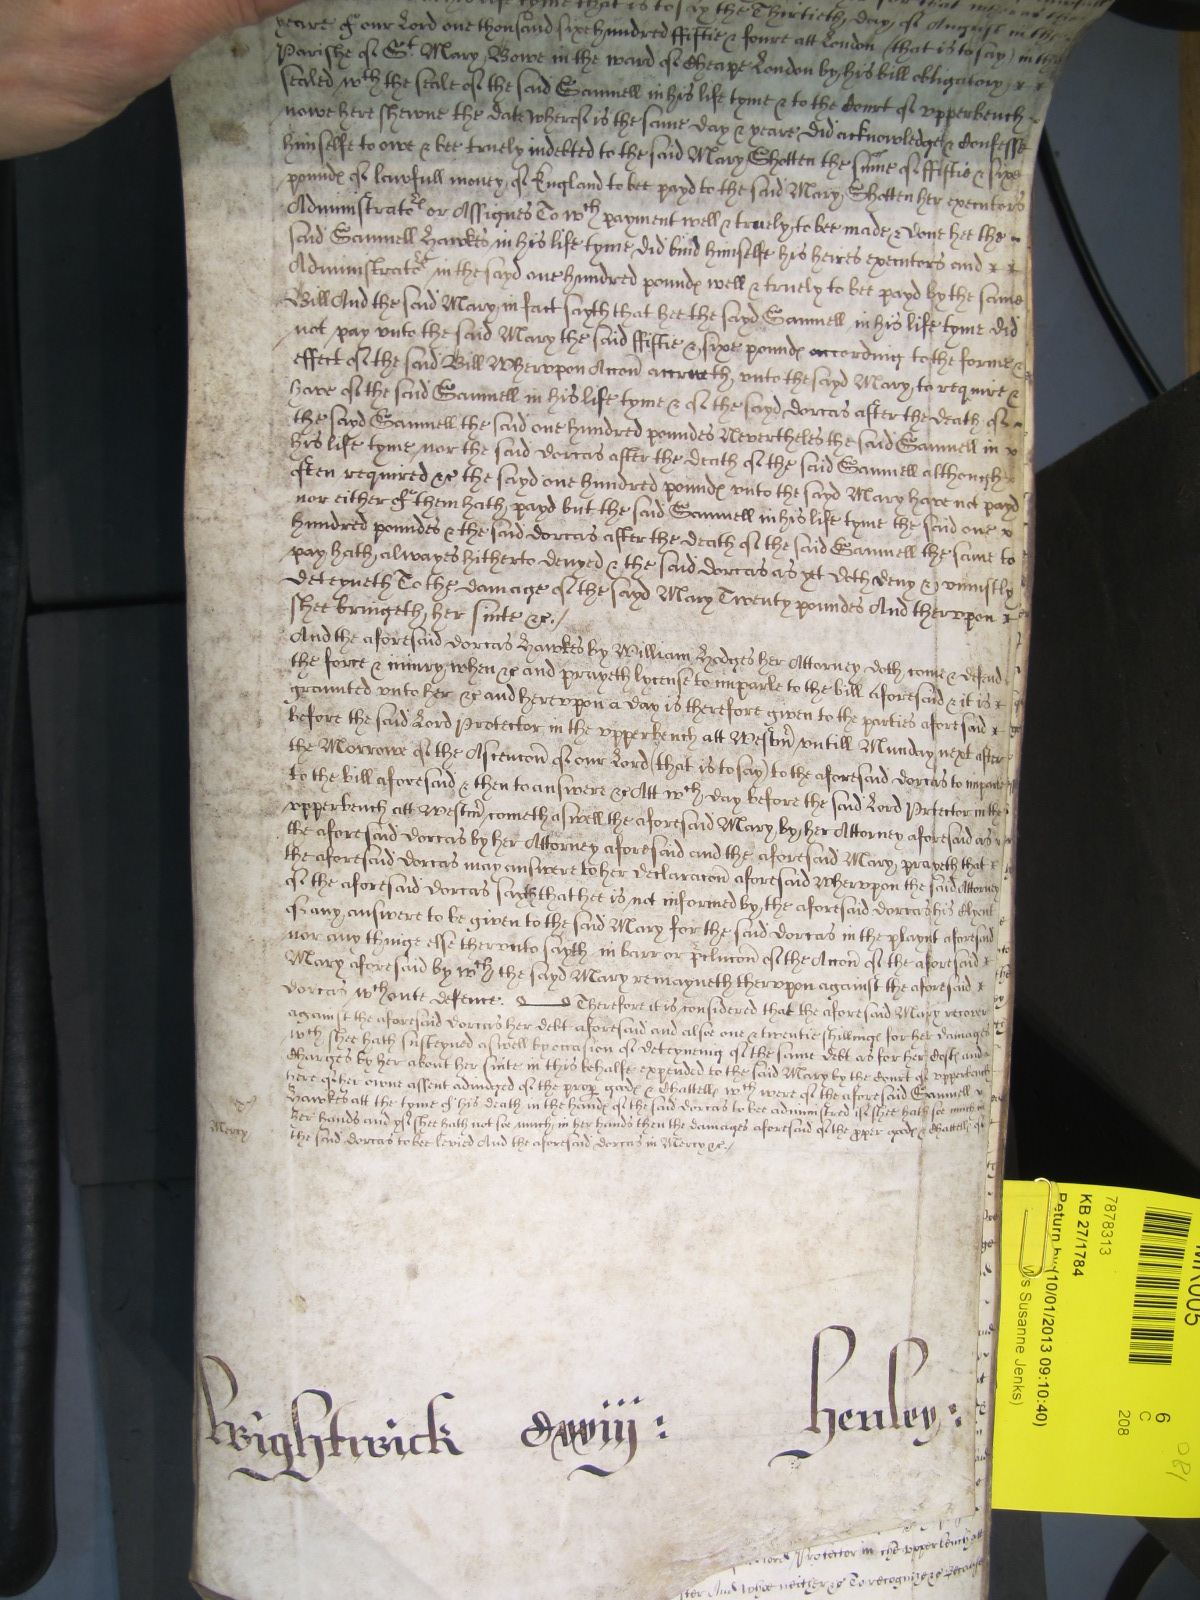 his life tyme that is to say the Thirtieth day of August in the
yeare of our Lord one thousand sixe hundred ffiftie & foure att London (that is to say) in the
Parishe of St. Mary Bowe in the ward of Cheape London by his bill obligatory x x
sealed wth the seale of the said Samuell in his life tyme & to the Court of vpperbench
nowe here shewne the date whereof is the same day & yeare did acknowledge & confesse
himselfe to owe & bee truely indebted to the said Mary Shotten the sume of ffiftie & sixe
pound of lawfull money of England to bee payd to the said Mary Shotten her executors
Administrators or Assignes To wch payment well & truely to bee made & done hee the
said Samuell Hawkes in his life tyme did bind himselfe his heires executors and x x
Administrators in the sayd one hundred pound well & truely to bee payd by the same
Bill And the said Mary in fact sayth that hee the sayd Samuell in his life tyme did
not pay vnto the said Mary the said ffiftie & sixe pound according to the forme &
effect of the said Bill Whervpon Accon accrueth vnto the sayd Mary to require &
have of the said Samuell in his life tyme & of the sayd Dorcas after the death of
the sayd Samuell the said one hundred poundes Nevertheles the said Samuell in x
his life tyme nor the said Dorcas after the death of the said Samuell although
often required &c the sayd one hundred pound vnto the sayd Mary have not payd
nor either of them hath payd but the said Samuell in his life tyme the said one x
hundred poundes & the said Dorcas after the death of the said Samuell the same to
pay hath alwayes hitherto denyed & the said Dorcas as yet doth deny & vniustly
deteyneth To the damage of the sayd Mary Twenty poundes And thervpon x
shee bringeth her suite &c./
And the aforesaid Dorcas Hawkes by William Hodges her Attorney doth come & defend
the force & iniury when &c and prayeth lycense to imparle to the bill aforesaid & it is x
graunted vnto her &c and herevpon a day is therefore given to the parties aforesaid x
before the said Lord Protector in the vpperbench att Westm vntill Munday next after
the Morrowe of the Ascencon of our Lord (that is to say) to the aforesaid Dorcas to imparle
to the bill aforesaid & then to answere &c Att wch day before the said Lord Protector in the
vpperbench att Westm cometh aswell the aforesaid Mary by her Attorney aforesaid as
the aforesaid Dorcas by her Attorney aforesaid and the aforesaid Mary prayeth that x
the aforesaid Dorcas may answere to her declaracon aforesaid Whervpon the said Attorney
of the aforesaid Dorcas sayth that hee is not informed by the aforesaid Dorcas his Clyent
of any answere to be given to the said Mary for the said Dorcas in the playnt aforesaid
nor any thinge else thervnto sayth in barr or preclucon of the Accon of the aforesaid x
Mary aforesaid by wch the sayd Mary remayneth thervpon against the aforesaid x
Dorcas wthoute defence. Therefore it is considered that the aforesaid Mary recover
against the aforesaid Dorcas her debt aforesaid and alsoe one & twentie shillings for her damages
wch shee hath susteyned aswell by occasion of deteyneing of the same debt as for her Costs and
Charges by her about her suite in this behalfe expended to the said Mary by the Court of vpperbench
here of her owne assent adiudged of the proper goods & Chattells wch were of the aforesaid Samuell x
Hawkes att the tyme of his death in the hands of the said Dorcas to bee administred if shee hath soe much in
her hands and if shee hath not soe much in her hands then the damages aforesaid of the proper goods & Chattells of
Mercy
the said Dorcas to bee levied And the aforesaid Dorcas in Mercy &c./
Wightwick
henley:
Lord Protector in the vpperbench att
7878313
KB 27/1784
Return by (10/01/2013 09:10:40)
Susanne Jenks)
6
C
208